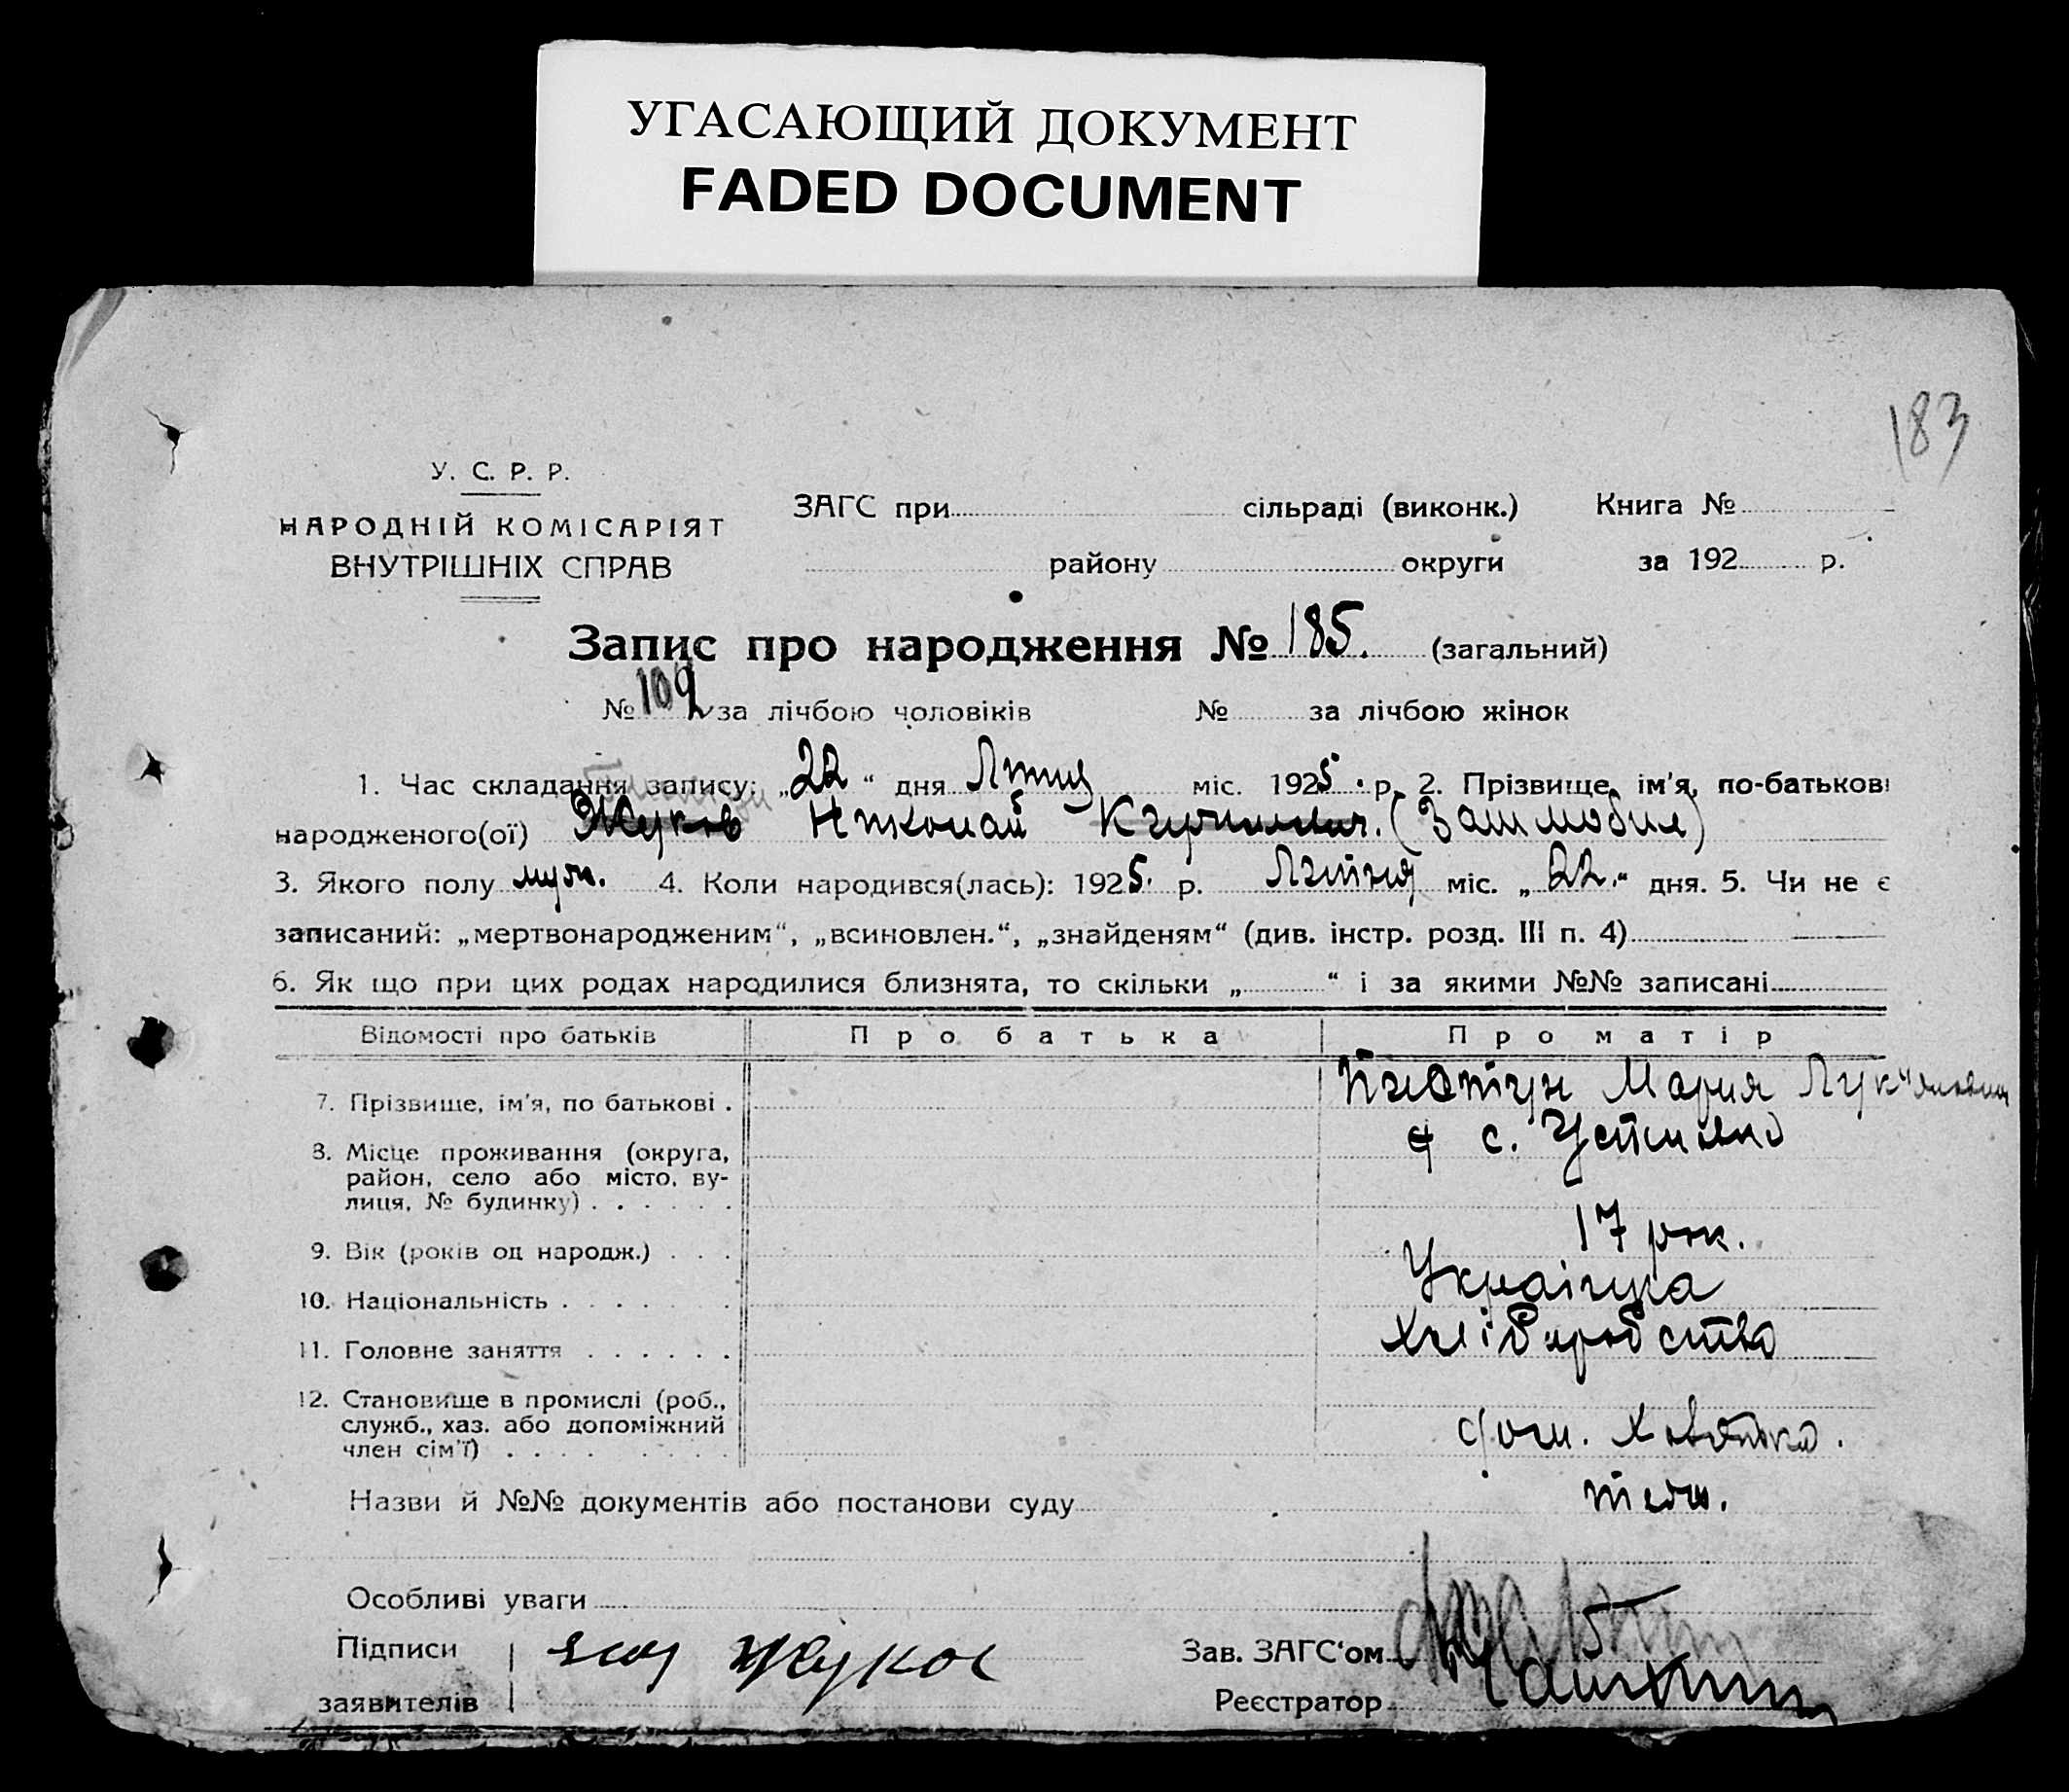 УГАСАЮЩИЙ ДОКУМЕНТ
FADED DOCUMENT
183
У. С. Р. Р.
НАРОДНІЙ КОМІСАРІЯТ
ВНУТРІШНІХ СПРАВ
ЗАГС при сільраді (виконк.) Книга №
району округи за 192 р.
Запис про народження № 185. (загальний)
№ 109 за лічбою чоловіків № за лічбою жінок
1. Час складання запису: „22“ дня міс. 1925 р. 2. Прізвище, ім'я, по-батькові
народженого(ої) Жуков Николай
3. Якого полу муж. 4. Коли народився(лась): 1925. р. Липня міс. „22.“ дня. 5. Чи не є
записаний: „мертвонародженим“, „всиновлен.“, „знайденям“ (див. інстр. розд. III п. 4)
6. Як що при цих родах народилися близнята, то скільки „ “ і за якими №№ записані
Відомості про батьків Про батька Про матір
7. Прізвище, ім'я, по батькові . Мария
8. Місце проживання (округа, с.
район, село або місто, ву-
лиця, № будинку) . . . . . .
9. Вік (років од народж.) . . . 17 рок.
10. Національність . . . . . . . Українка
11. Головне заняття . . . . . . Хліборобство
12. Становище в промислі (роб.,
служб., хаз. або допоміжний
член сім'ї) . . . .
Назви й №№ документів або постанови суду
Особливі уваги
Підписи Жуков Зав. ЗАГС'ом
заявителів Реєстратор